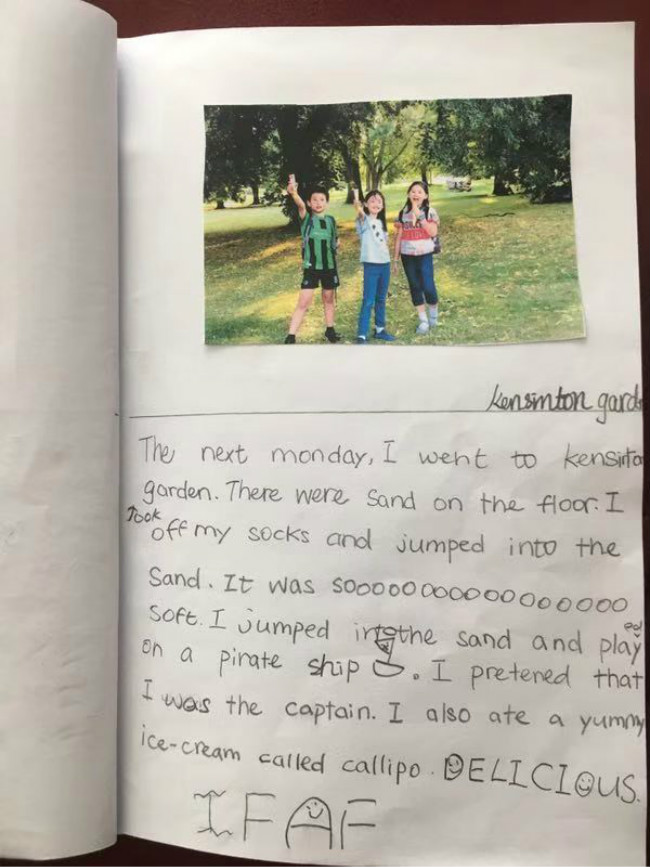 kensinton gard
The next monday, I went to kensinto
garden. There were sand on the floor. I
Took off my socks and jumped into the
sand. It was soooooooooooooooooo
soft. I jumped into the sand and played
on a pirate ship. I pretened that
I was the captain. I also ate a yummy
ice-cream called callipo. DELICIOUS.
IFAF